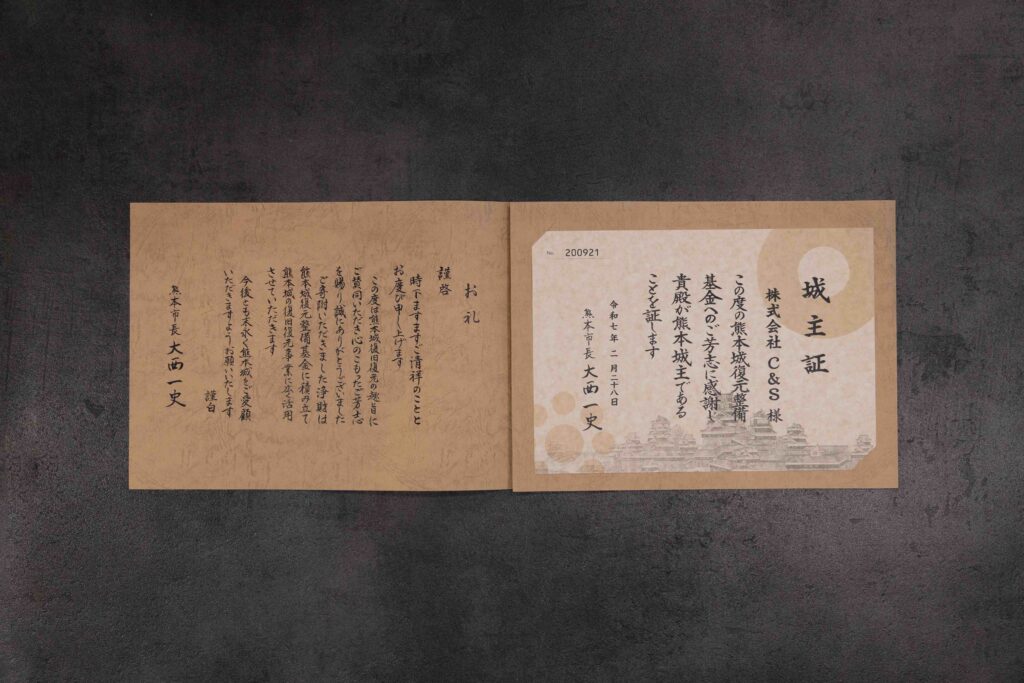 城主証
株式会社 C&S 様
この度の熊本城復元整備
基金へのご芳志に感謝し
貴殿が熊本城主である
ことを証します
令和七年 二月二十八日
熊本市長 大西一史
No. 200921
お礼
謹啓
時下ますますご清祥のことと
お慶び申し上げます
この度は熊本城復旧復元の趣旨に
ご賛同いただき心のこもったご芳志
を賜り誠にありがとうございました
ご寄附いただきました浄財は
熊本城復元整備基金に積み立て
熊本城の復旧復元事業に広く活用
させていただきます
今後とも末永く熊本城をご愛顧
いただきますようお願いいたします
謹白
熊本市長 大西一史